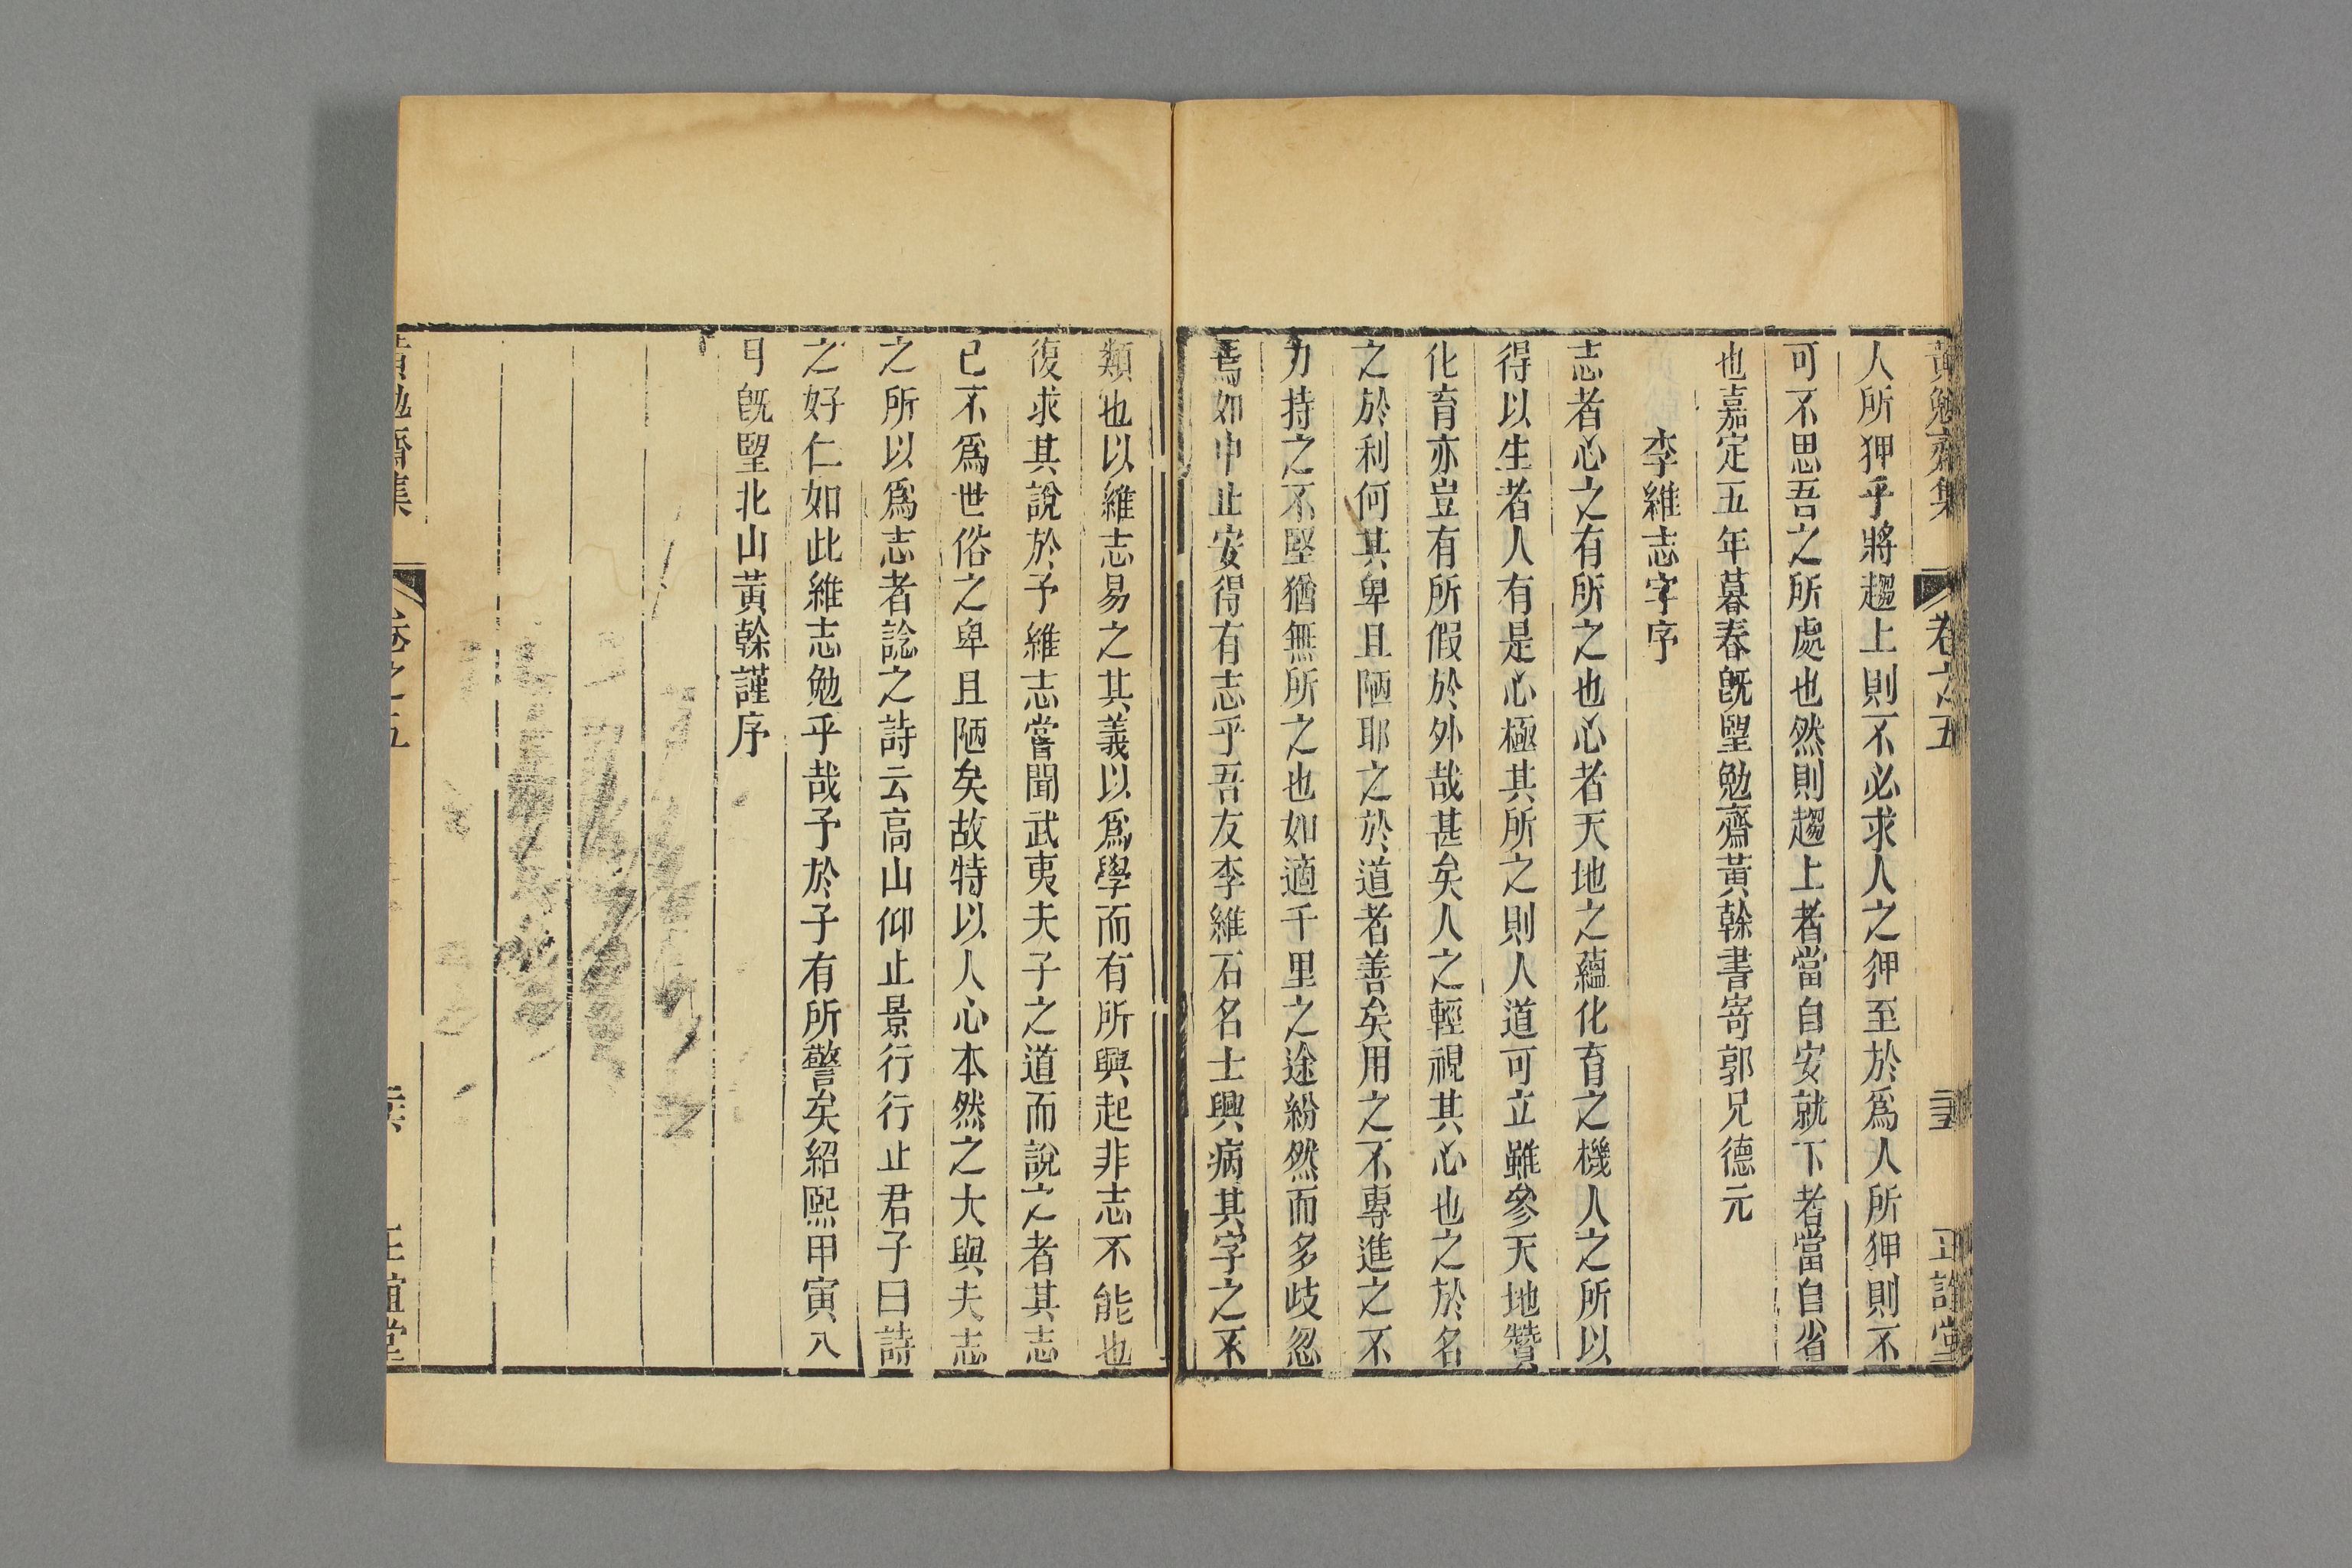 黃勉齋集 卷之五 正誼堂
人所狎乎將趨上則不必求人之狎至於爲人所狎則不
可不思吾之所處也然則趨上者當自安就下者當自省
也嘉定五年暮春旣朢勉齋黃榦書寄郭兄德元
李維志字序
志者心之有所之也心者天地之蘊化育之機人之所以
得以生者人有是心極其所之則人道可立雖參天地贊
化育亦豈有所假於外哉甚矣人之輕視其心也之於名
之於利何其卑且陋耶之於道者善矣用之不專進之不
力持之不堅猶無所之也如適千里之途紛然而多歧忽
焉如中止安得有志乎吾友李維石名士興病其字之不
類也以維志易之其義以爲學而有所興起非志不能也
復求其說於予維志嘗聞武夷夫子之道而說之者其志
已不爲世俗之卑且陋矣故特以人心本然之大與夫志
之所以爲志者諗之詩云高山仰止景行行止君子曰詩
之好仁如此維志勉乎哉予於子有所警矣紹熙甲寅八
月旣朢北山黃榦謹序
黃勉齋集 卷之五 正誼堂